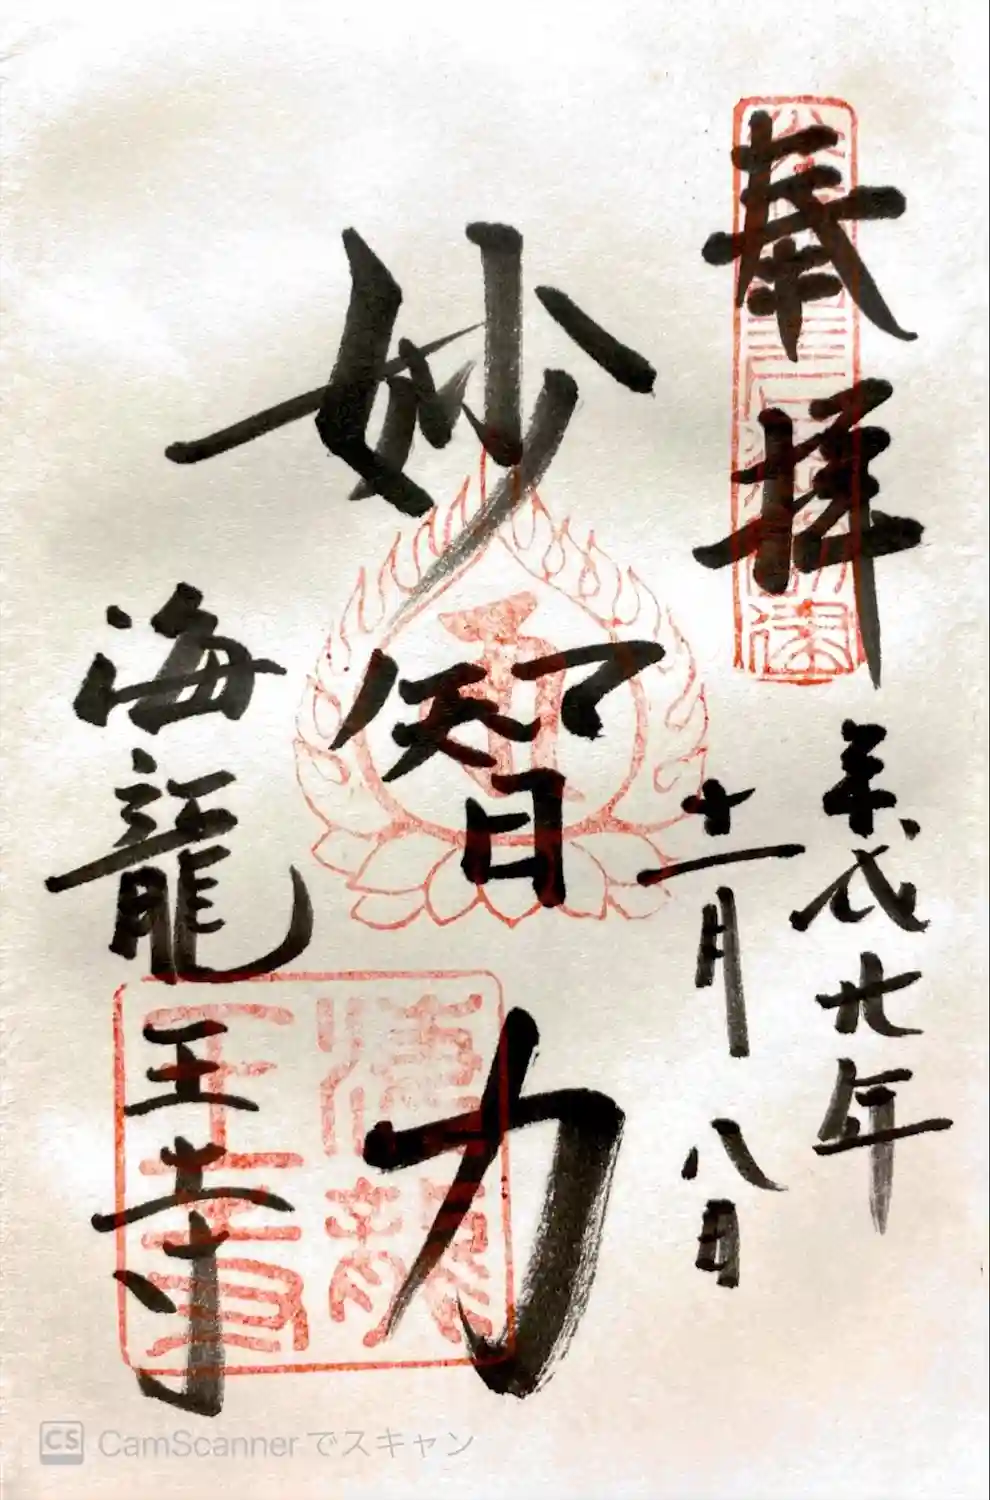 奉拝
平成廿九年
十一月八日
妙智力
海龍王寺
CamScannerでスキャン